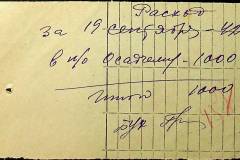 Расход
за 19 сентября - 42
в п/о Осадчему - 1000
Итого 1000
бух